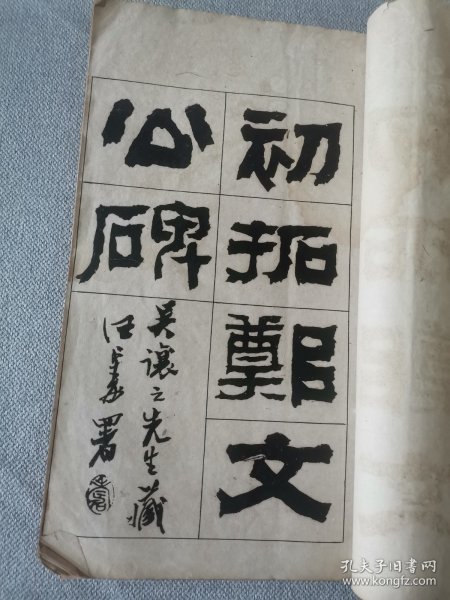 初拓鄭文
公碑
吴讓之先生藏
署
孔夫子旧书网
www.kongfz.com